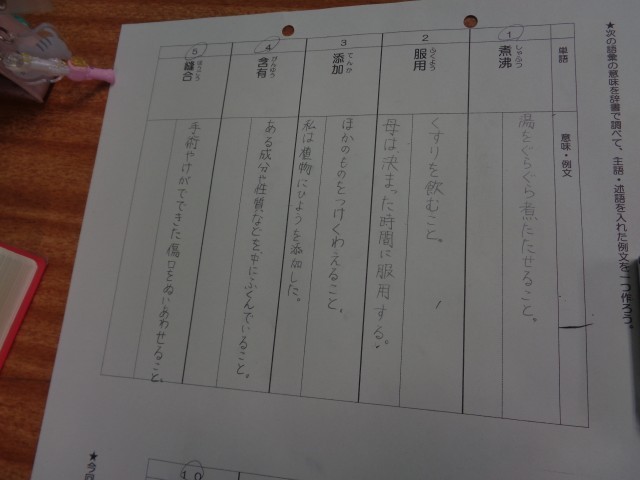 ★次の語彙の意味を辞書で調べて、主語・述語を入れた例文を一つ作ろう。
単語
意味・例文
1
煮沸
しゃふつ
湯をぐらぐら煮たたせること。
2
服用
ふくよう
くすりを飲むこと。
母は決まった時間に服用する。
3
添加
てんか
ほかのものをつけくわえること。
私は植物にひようを添加した。
4
含有
がんゆう
ある成分や性質などを中にふくんでいること。
5
縫合
ほうごう
手術やけがでできた傷口をぬいあわせること。
10
★今